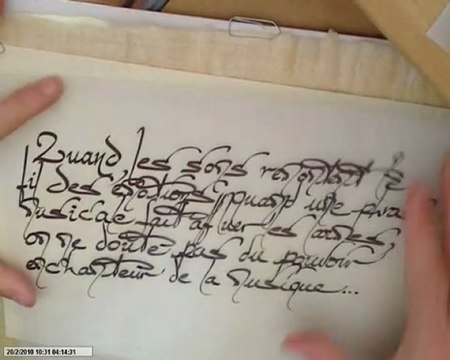 Quand les sons remontent le
fil des émotions, quand une phrase
musicale fait affluer les larmes,
on ne doute pas du pouvoir
enchanteur de la musique...
20/2/2010 10:31 04:14:31